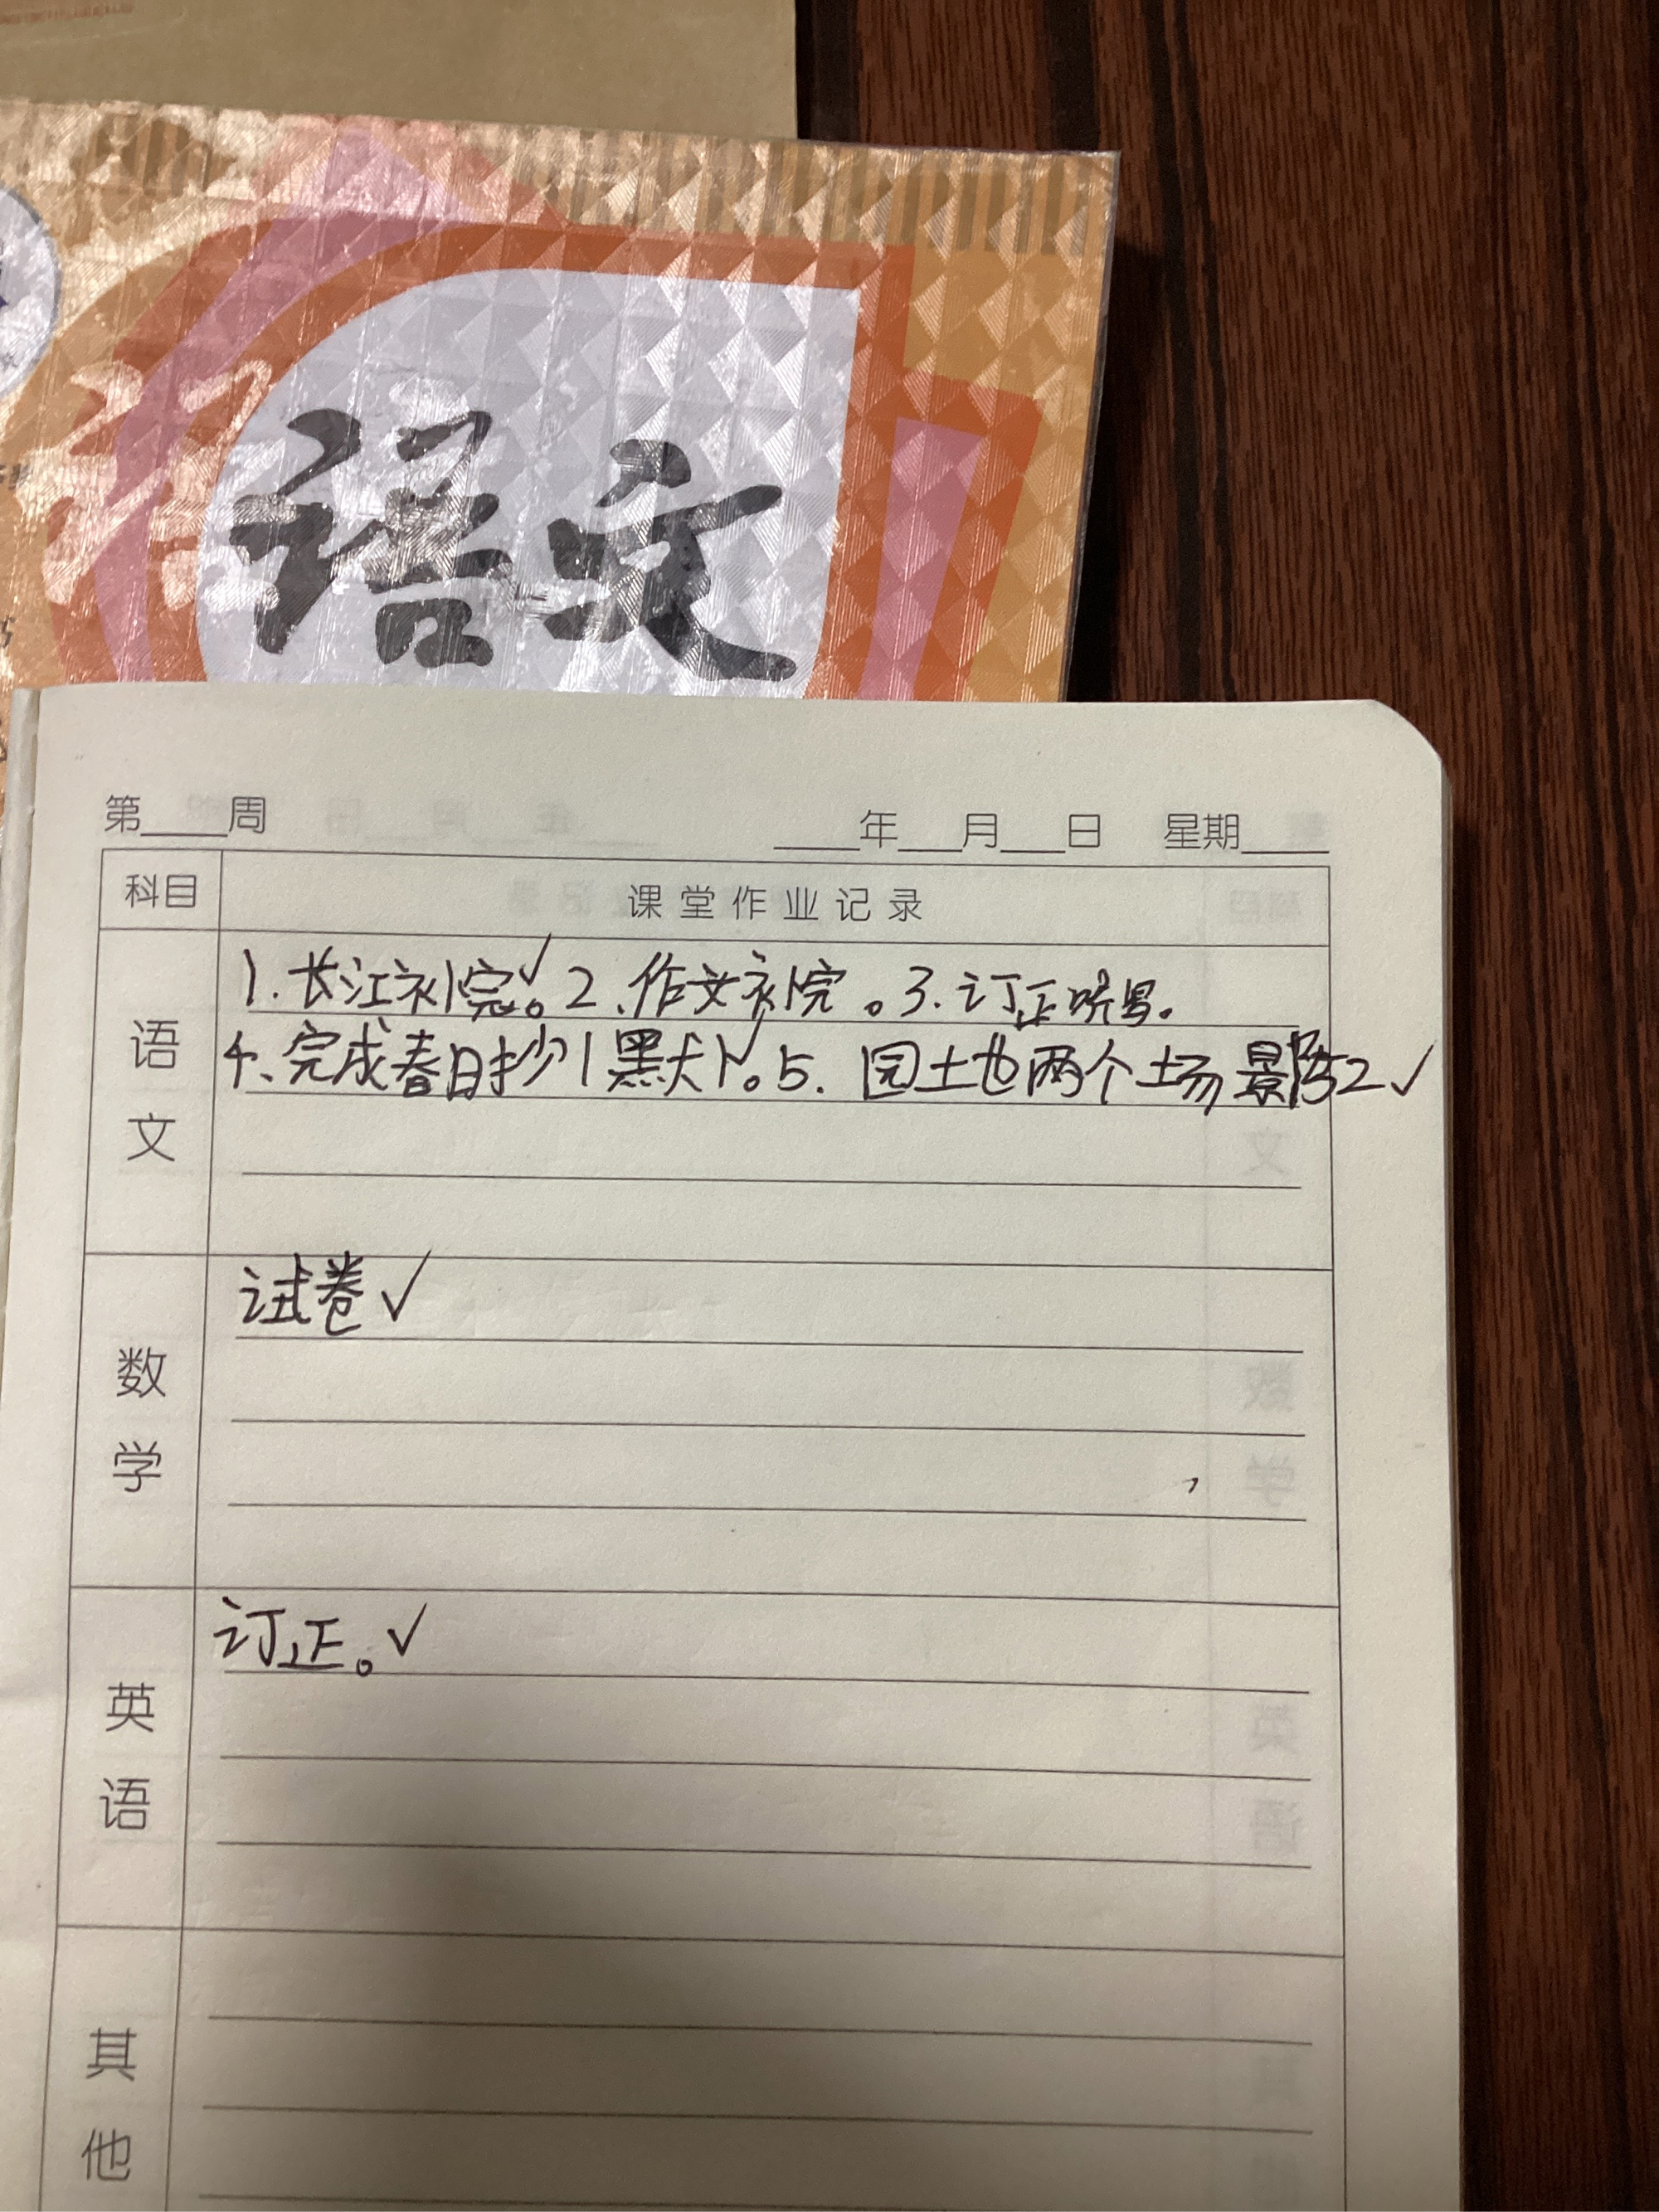 语文
第____周 ____年___月___日 星期____
科目 课堂作业记录
语文
1.长江补完√。2、作文补完。3.订正
4、完成春日抄1默1√。5. 园土也两个场景 2√
数学
试卷√
英语
订正。√
其他